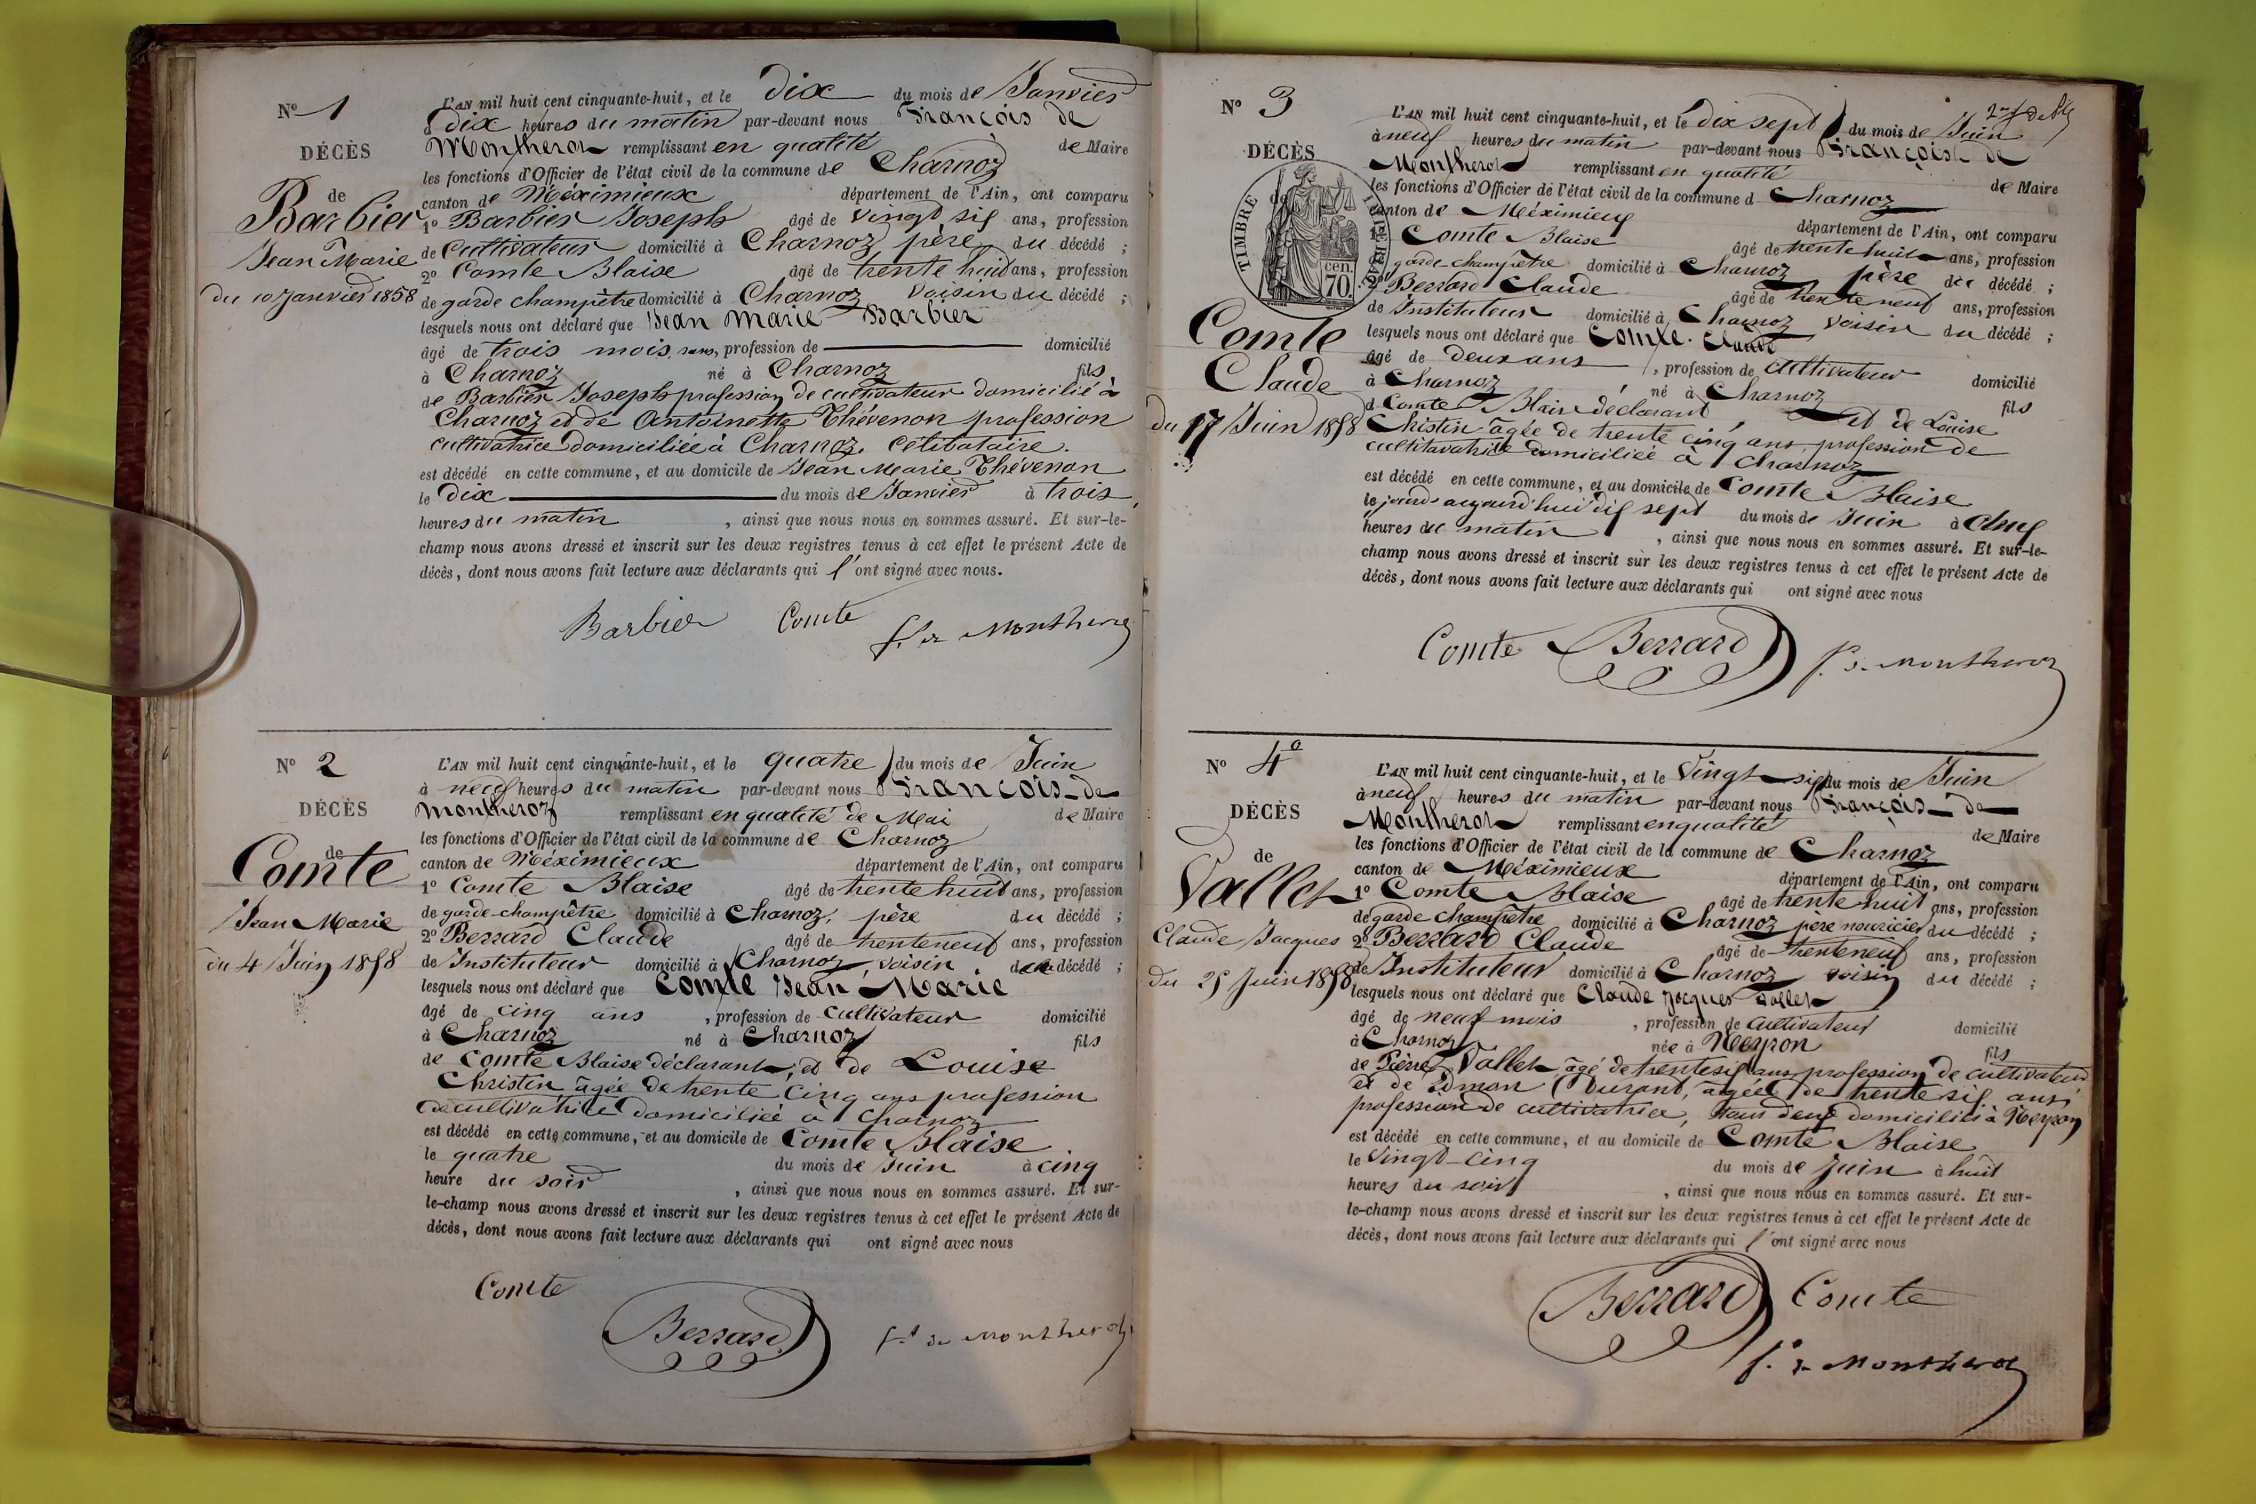 N.o 1
DÉCÈS
de
Barbier
Jean Marie
du 10 Janvier 1858
L'AN mil huit cent cinquante-huit, et le dix du mois de Janvier
à dix heures du matin par-devant nous François de
Montherot remplissant en qualité de Maire
les fonctions d'Officier de l'état civil de la commune de Charnoz
canton de Méximieux département de l'Ain, ont comparu
1o Barbier Joseph âgé de vingt six ans, profession
de cultivateur domicilié à Charnoz père du décédé ;
2o Comte Blaise âgé de trente huit ans, profession
de garde champêtre domicilié à Charnoz voisin du décédé ;
lesquels nous ont déclaré que Jean Marie Barbier
âgé de trois mois, ans, profession de domicilié
à Charnoz né à Charnoz fils
de Barbier Joseph profession de cultivateur domicilié à
Charnoz et de Antoinette Thévenon profession
cultivatrice domiciliée à Charnoz. célibataire.
est décédé en cette commune, et au domicile de Jean Marie Thévenon
le dix du mois de Janvier à trois
heures du matin , ainsi que nous nous en sommes assuré. Et sur-le-
champ nous avons dressé et inscrit sur les deux registres tenus à cet effet le présent Acte de
décès, dont nous avons fait lecture aux déclarants qui l'ont signé avec nous.
Barbier Comte f. de Montherot
No 2
DÉCÈS
de
Comte
Jean Marie
du 4 Juin 1858
L'AN mil huit cent cinquante-huit, et le quatre du mois de Juin
à neuf heures du matin par-devant nous François de
Montheroz remplissant en qualité de Mai de Maire
les fonctions d'Officier de l'état civil de la commune de Charnoz
canton de Méximieux département de l'Ain, ont comparu
1o Comte Blaise âgé de trente huit ans, profession
de garde-champêtre domicilié à Charnoz, père du décédé ;
2o Berrard Claude âgé de trente neuf ans, profession
de Instituteur domicilié à Charnoz, voisin du décédé ;
lesquels nous ont déclaré que Comte Jean Marie
âgé de cinq ans , profession de cultivateur domicilié
à Charnoz né à Charnoz fils
de Comte Blaise déclarant, et de Louise
Christin âgée de trente cinq ans profession
de cultivatrice domiciliée à Charnoz
est décédé en cette commune, et au domicile de Comte Blaise
le quatre du mois de Juin à cinq
heure du soir , ainsi que nous nous en sommes assuré. Et sur-
le-champ nous avons dressé et inscrit sur les deux registres tenus à cet effet le présent Acte de
décès, dont nous avons fait lecture aux déclarants qui ont signé avec nous
Comte
Berrard f. de Montherot
No 3
DÉCÈS
de
TIMBRE IMPÉRIAL
70 cen.
Comte
Claude
du 17 Juin 1858
L'AN mil huit cent cinquante-huit, et le dix sept du mois de Juin
à neuf heures du matin par-devant nous François de
Montherot remplissant en qualité de Maire
les fonctions d'Officier de l'état civil de la commune d Charnoz
canton de Méximieux département de l'Ain, ont comparu
Comte Blaise âgé de trente huit ans, profession
garde champêtre domicilié à Charnoz père du décédé ;
Berrard Claude âgé de trente neuf ans, profession
de Instituteur domicilié à Charnoz voisin du décédé ;
lesquels nous ont déclaré que Comte. Claude
âgé de deux ans , profession de cultivateur domicilié
à Charnoz né à Charnoz fils
d Comte Blaise déclarant et de Louise
Christin âgée de trente cinq ans, profession de
cultivatrice domiciliée à Charnoz
est décédé en cette commune, et au domicile de Comte Blaise
le jourd' aujourd'hui dix sept du mois de Juin à cinq
heures du matin , ainsi que nous nous en sommes assuré. Et sur-le-
champ nous avons dressé et inscrit sur les deux registres tenus à cet effet le présent Acte de
décès, dont nous avons fait lecture aux déclarants qui ont signé avec nous
Comte Berrard f. de Montherot
No 4
DÉCÈS
de
Vallet
Claude Jacques
du 25 Juin 1858
L'AN mil huit cent cinquante-huit, et le vingt six du mois de Juin
à neuf heures du matin par-devant nous François de
Montherot remplissant en qualité de Maire
les fonctions d'Officier de l'état civil de la commune de Charnoz
canton de Méximieux département de l'Ain, ont comparu
1o Comte Blaise âgé de trente huit ans, profession
de garde champêtre domicilié à Charnoz père nouricier du décédé ;
2o Berrard Claude âgé de trente neuf ans, profession
de Instituteur domicilié à Charnoz voisin du décédé ;
lesquels nous ont déclaré que Claude Jacques Vallet
âgé de neuf mois , profession de cultivateur domicilié
à Charnoz née à Neyron fils
de Pierre Vallet âgé de trente six ans profession de cultivateur
et de Durant, âgée de trente six ans
profession de cultivatrice, tous deux domiciliés à Neyron
est décédé en cette commune, et au domicile de Comte Blaise
le vingt-cinq du mois de Juin à huit
heures du soir , ainsi que nous nous en sommes assuré. Et sur-
le-champ nous avons dressé et inscrit sur les deux registres tenus à cet effet le présent Acte de
décès, dont nous avons fait lecture aux déclarants qui l'ont signé avec nous
Berrard Comte
f. de Montherot